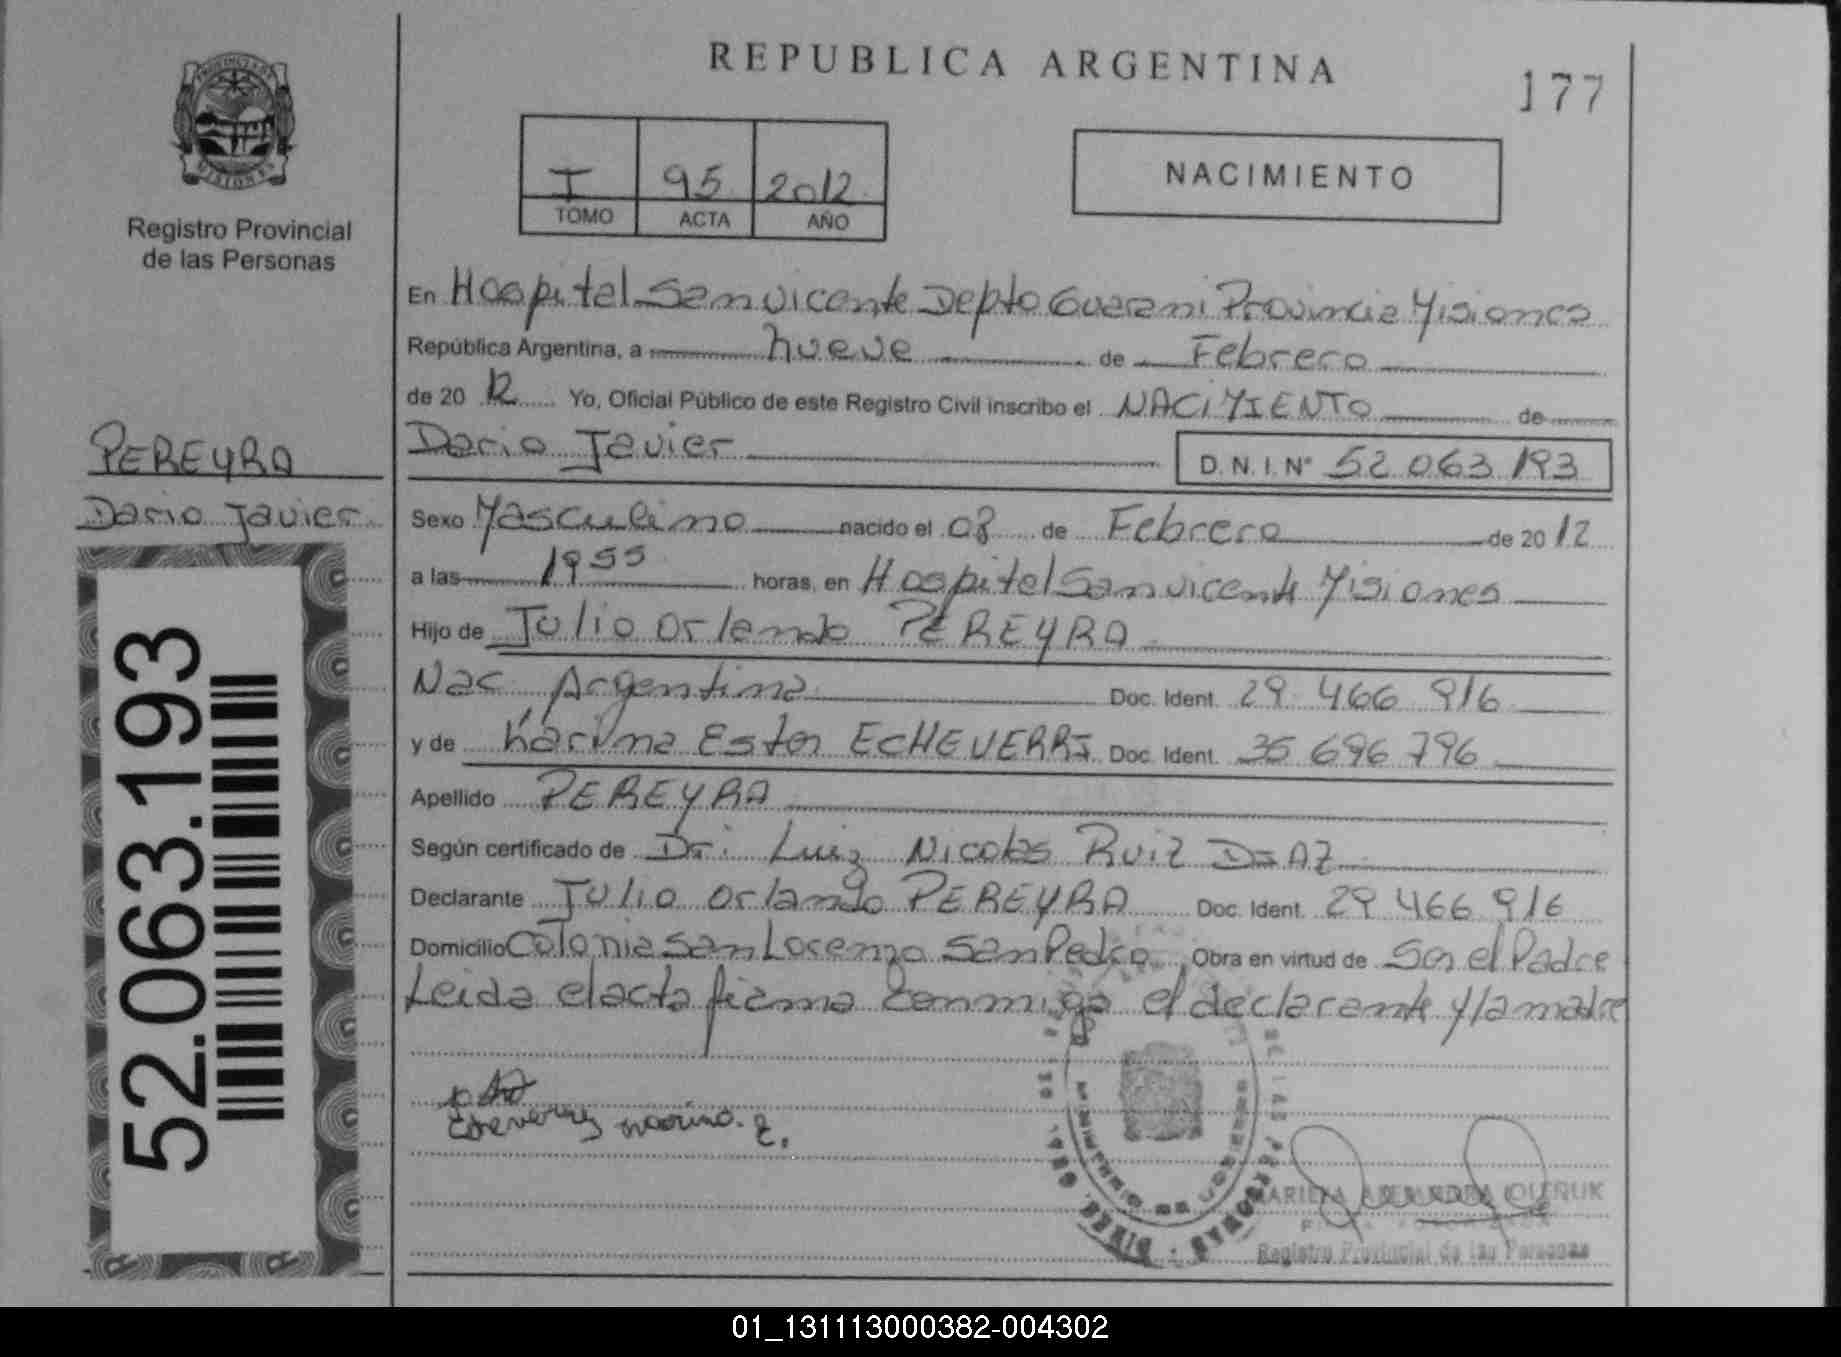 REPUBLICA ARGENTINA
177
PROVINCIA DE
MISIONES
Registro Provincial
de las Personas
I 95 2012
TOMO ACTA AÑO
NACIMIENTO
En Hospital San vicente Depto Guarani Provincia Misiones
República Argentina, a nueve de Febrero
de 20 12 Yo, Oficial Público de este Registro Civil inscribo el NACIMIENTO de
Dario Javier D.N.I.Nº 52.063.193
PEREYRA
Dario Javier
Sexo Masculino nacido el 08 de Febrero de 20 12
a las 1955 horas, en Hospital San vicente Misiones
Hijo de Julio Orlando PEREYRA
Nac Argentina Doc. Ident. 29 466 916
y de Karina Ester ECHEVERRI Doc. Ident. 35 696 796
Apellido PEREYRA
Según certificado de Dr: Luiz Nicolas Ruiz DIAZ
Declarante Julio Orlando PEREYRA Doc. Ident. 29 466 916
Domicilio Colonia San Lorenzo San Pedro Obra en virtud de Ser el Padre
Leida el acta firma conmigo el declarante y la madre
52.063.193
Registro Provincial de las Personas
01_131113000382-004302